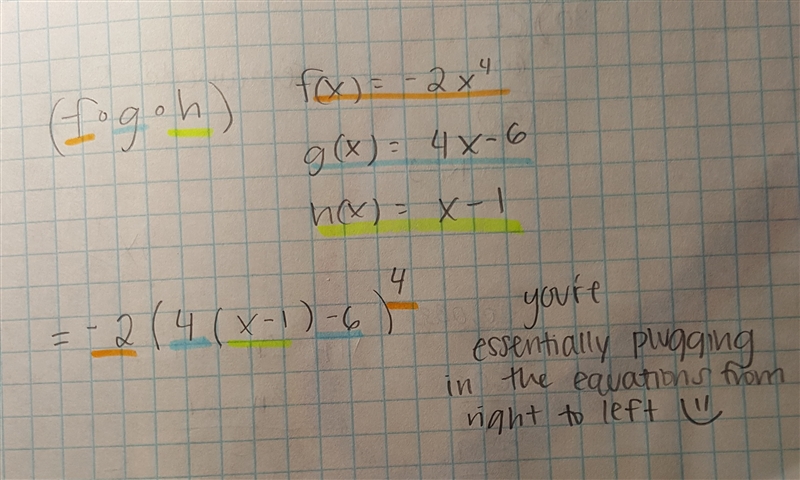 (f∘g∘h)
f(x) = -2x⁴
g(x) = 4x-6
h(x) = x-1
= -2(4(x-1)-6)⁴
you're
essentially plugging
in the equations from
right to left